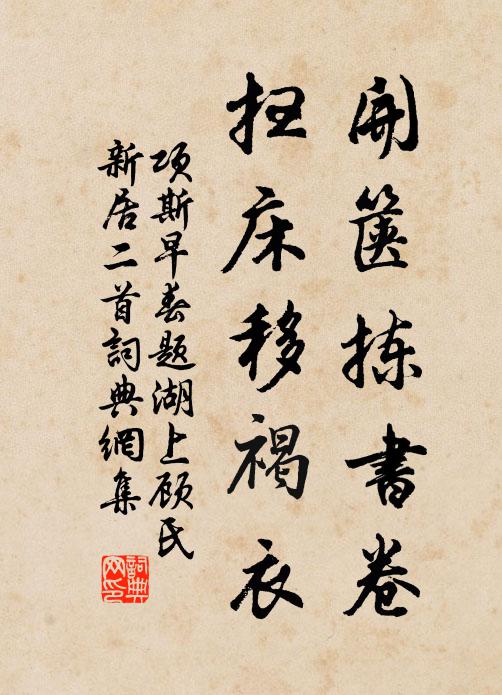 開篋揀書卷
扫床移褐衣
项斯早春题湖上顾氏
新居二首詞典網集
詞典
网印